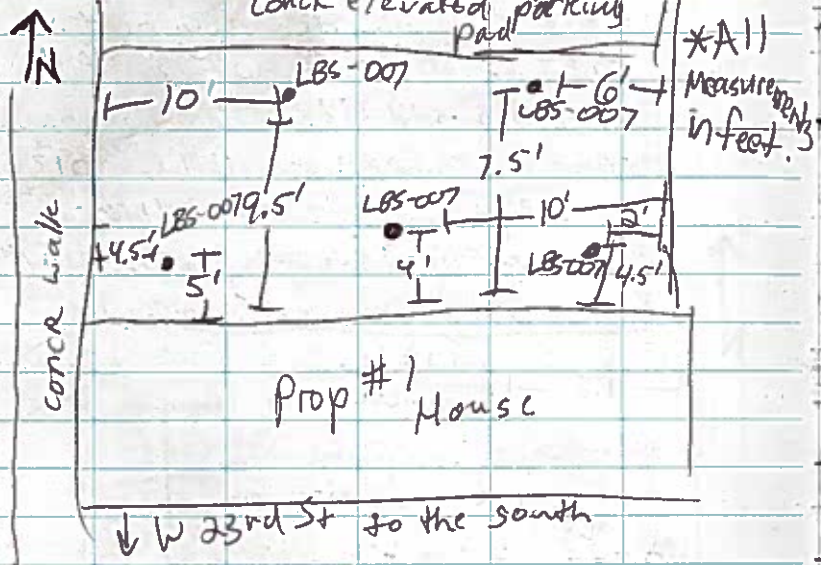 concr elevated parking
pad
N
*All
Measurements
in feet.
10'
LBS-007
LBS-007
6'
7.5'
9.5'
LBS-007
LBS-007
10'
2'
4.5'
5'
4'
LBS-007
4.5'
concr walk
Prop #1
House
↓ W 23rd St to the south